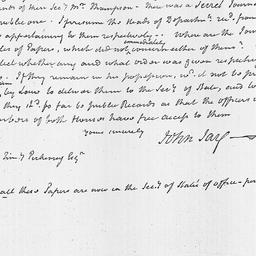 of their Secy Mr. Thompson. There was a Secret Journal
one. I presume the Heads of Departmts. recd. from
appertaining to them respectively. where are the
immediately
of Papers, which did not concern either of them?
whether any and what order was given respecting
If they remain in his possession, wd. it not be
by Law to deliver them to the Secy. of State, and
they shd. so far be public Records as that the officers
of both Houses have free access to them
yours sincerely
John Jay
Timy. Pickering Esqr.
all these Papers are now in the Secy. of State's office